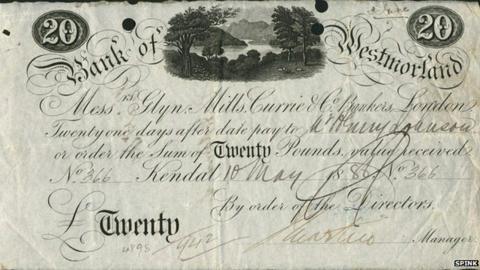 20 20
Bank of Westmorland
Mess.rs Glyn, Mills, Currie & Co. Bankers, London
Twenty one days after date pay to Mr Henry Johnson
or order the Sum of Twenty Pounds, value received
No. 366 Kendal 10 May 18 No. 366
By order of the Directors.
£ Twenty
Manager
SPINK